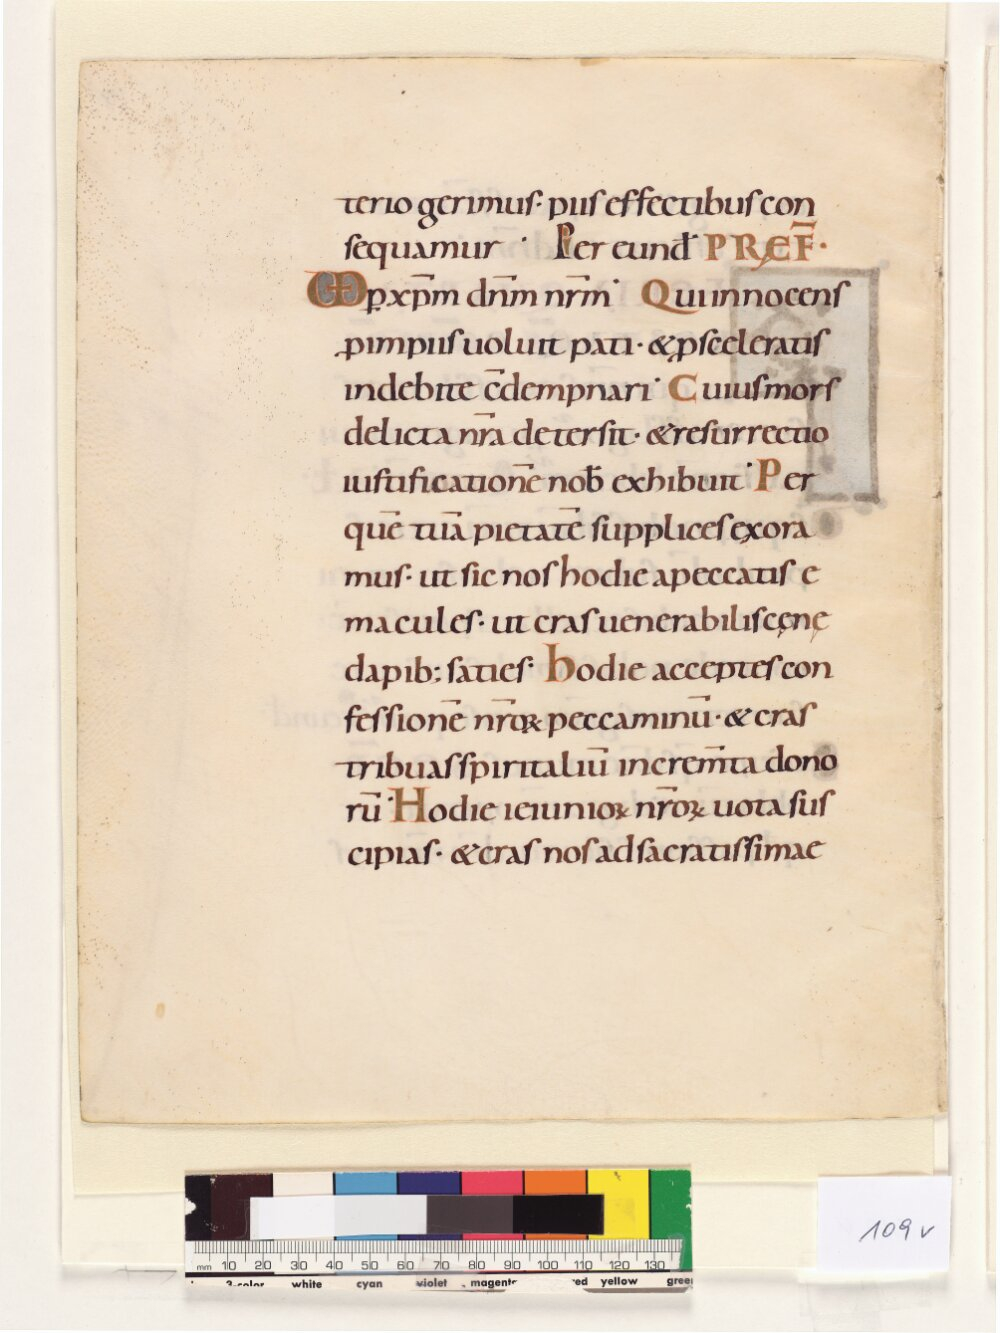 terio gerimus· piis effectibus con
sequamur · Per eund̄ PRȨF̄·
Ꝙ p̱xp̄m dn̄m nr̄m· Qui innocens
ꝓ impiis uoluit pati· & ꝓ sceleratis
indebite c̄dempnari· Cuius mors
delicta nr̄a detersit· & resurrectio
iustificationē nob̄ exhibuit· Per
quē tuā pietatē supplices exora
mus· ut sic nos hodie a peccatis e
macules· ut cras uenerabilis cęnę
dapib; saties· hodie acceptes con
fessionē nr̄oꝝ peccaminū· & cras
tribuas spiritaliū increm̄ta dono
rū· Hodie ieiunioꝝ nr̄oꝝ uota sus
cipias· & cras nos ad sacratissimae
109 v
mm 10 20 30 40 50 60 70 80 90 100 110 120 130
3-color white cyan violet magenta red yellow green